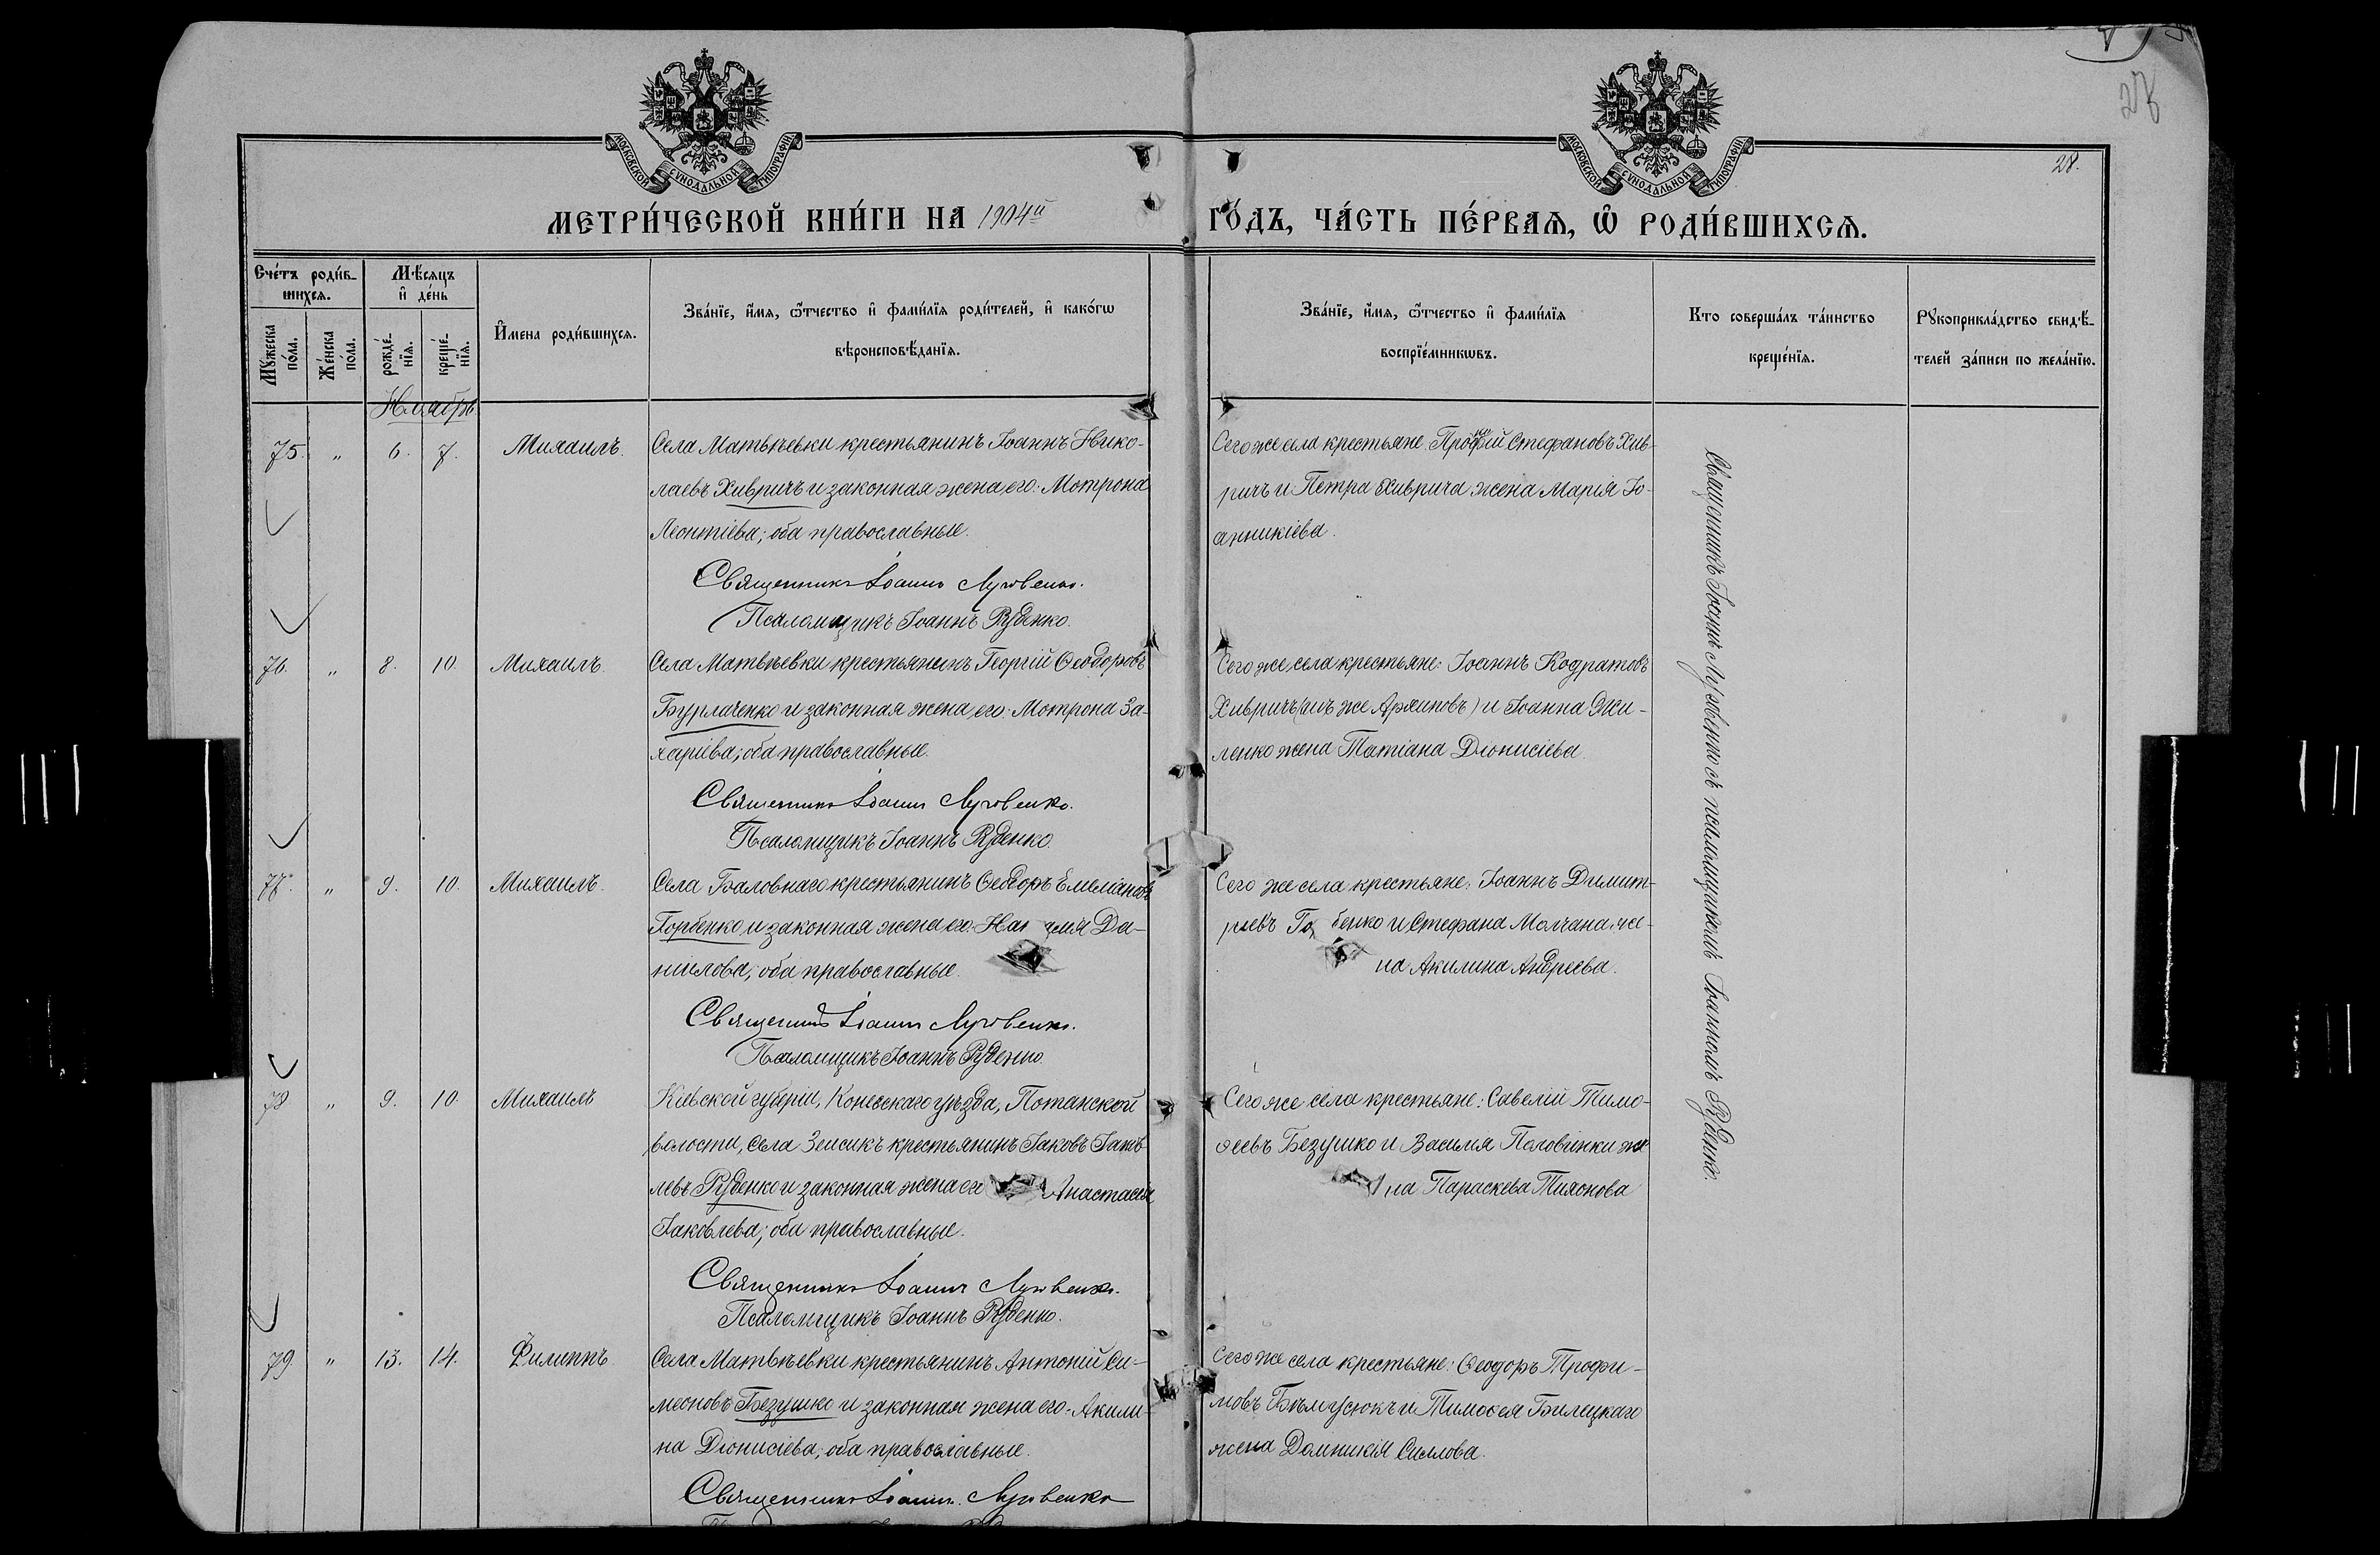 28
28.
МОСКОВСКОЙ СѴНОДАЛЬНОЙ ТИПОГРАФІИ.
МОСКОВСКОЙ СѴНОДАЛЬНОЙ ТИПОГРАФІИ.
МЕТРИ́ЧЕСКОЙ КНИ́ГИ НА 1904й ГО́ДЪ, ЧА́СТЬ ПЕ́РВАѦ, Ѡ҆ РОДИ́ВШИХСѦ.
Сче́тъ роди́в-
шихсѧ.
Мѣ́сѧцъ
и҆ де́нь
Мꙋ́жеска по́ла.
Же́нска по́ла.
рожде́-
нїѧ.
креще́-
нїѧ.
И҆мена роди́вшихсѧ.
Зва́нїе, и҆́мѧ, ѻ҆́тчество и҆ фами́лїѧ роди́телей, и҆ како́гѡ
вѣроисповѣ́данїѧ.
Зва́нїе, и҆́мѧ, ѻ҆́тчество и҆ фами́лїѧ
воспрїе́мникѡвъ.
Кто соверша́лъ та́инство
креще́нїѧ.
Рꙋкоприкла́дство свидѣ́-
телей за́писи по жела́нїю.
Ноябрь
75. " 6. 7. Михаилъ.
Села Матвѣевки крестьянинъ Іоаннъ Нико-
лаевъ Хивричъ и законная жена его: Мотрона
Леонтіева; оба православные.
Священникъ Іоаннъ
Псаломщикъ Іоаннъ Руденко.
Сего же села крестьяне: Стефановъ Хив-
ричъ и Петра Хиврича жена Марія Іо-
анникіева.
76. " 8. 10. Михаилъ.
Села Матвѣевки крестьянинъ Георгій Ѳеодоровъ
Бурлаченко и законная жена его: Мотрона За-
харіева; оба православные.
Священникъ Іоаннъ
Псаломщикъ Іоаннъ Руденко.
Сего же села крестьяне: Іоаннъ Кодратовъ
Хивричъ (онъ же Архиповъ) и Іоанна Жи-
ленко жена Татіана Діонисіева.
77. " 9. 10. Михаилъ.
Села Баловнаго крестьянинъ Ѳеодоръ Емеліановъ
Горбенко и законная жена его: Да-
ніилова; оба православные.
Священникъ Іоаннъ
Псаломщикъ Іоаннъ Руденко.
Сего же села крестьяне: Іоаннъ Димит-
ріевъ Го бенко и Стефана Молчана же-
на Акилина Андреева.
78 " 9. 10. Михаилъ
Кіевской губерніи, Каневскаго уѣзда, Потапской
волости, села крестьянинъ Іаковъ Іаков-
левъ Руденко и законная жена его Анастасія
Іаковлева; оба православные.
Священникъ Іоаннъ
Псаломщикъ Іоаннъ Руденко.
Сего же села крестьяне: Савелій Тимо-
ѳеевъ Безушко и Василія Половинки же-
на Параскева Тихонова
79. " 13. 14. Филиппъ.
Села Матвѣевки крестьянинъ Антоній Си-
меоновъ Безушко и законная жена его: Акили-
на Діонисіева; оба православные.
Священникъ Іоаннъ
Сего же села крестьяне: Ѳеодоръ Трофи-
мовъ и Тимоѳея Билецкаго
жена Домникія Силлова.
Священникъ Іоаннъ съ псаломщикомъ Іоанномъ Руденко.